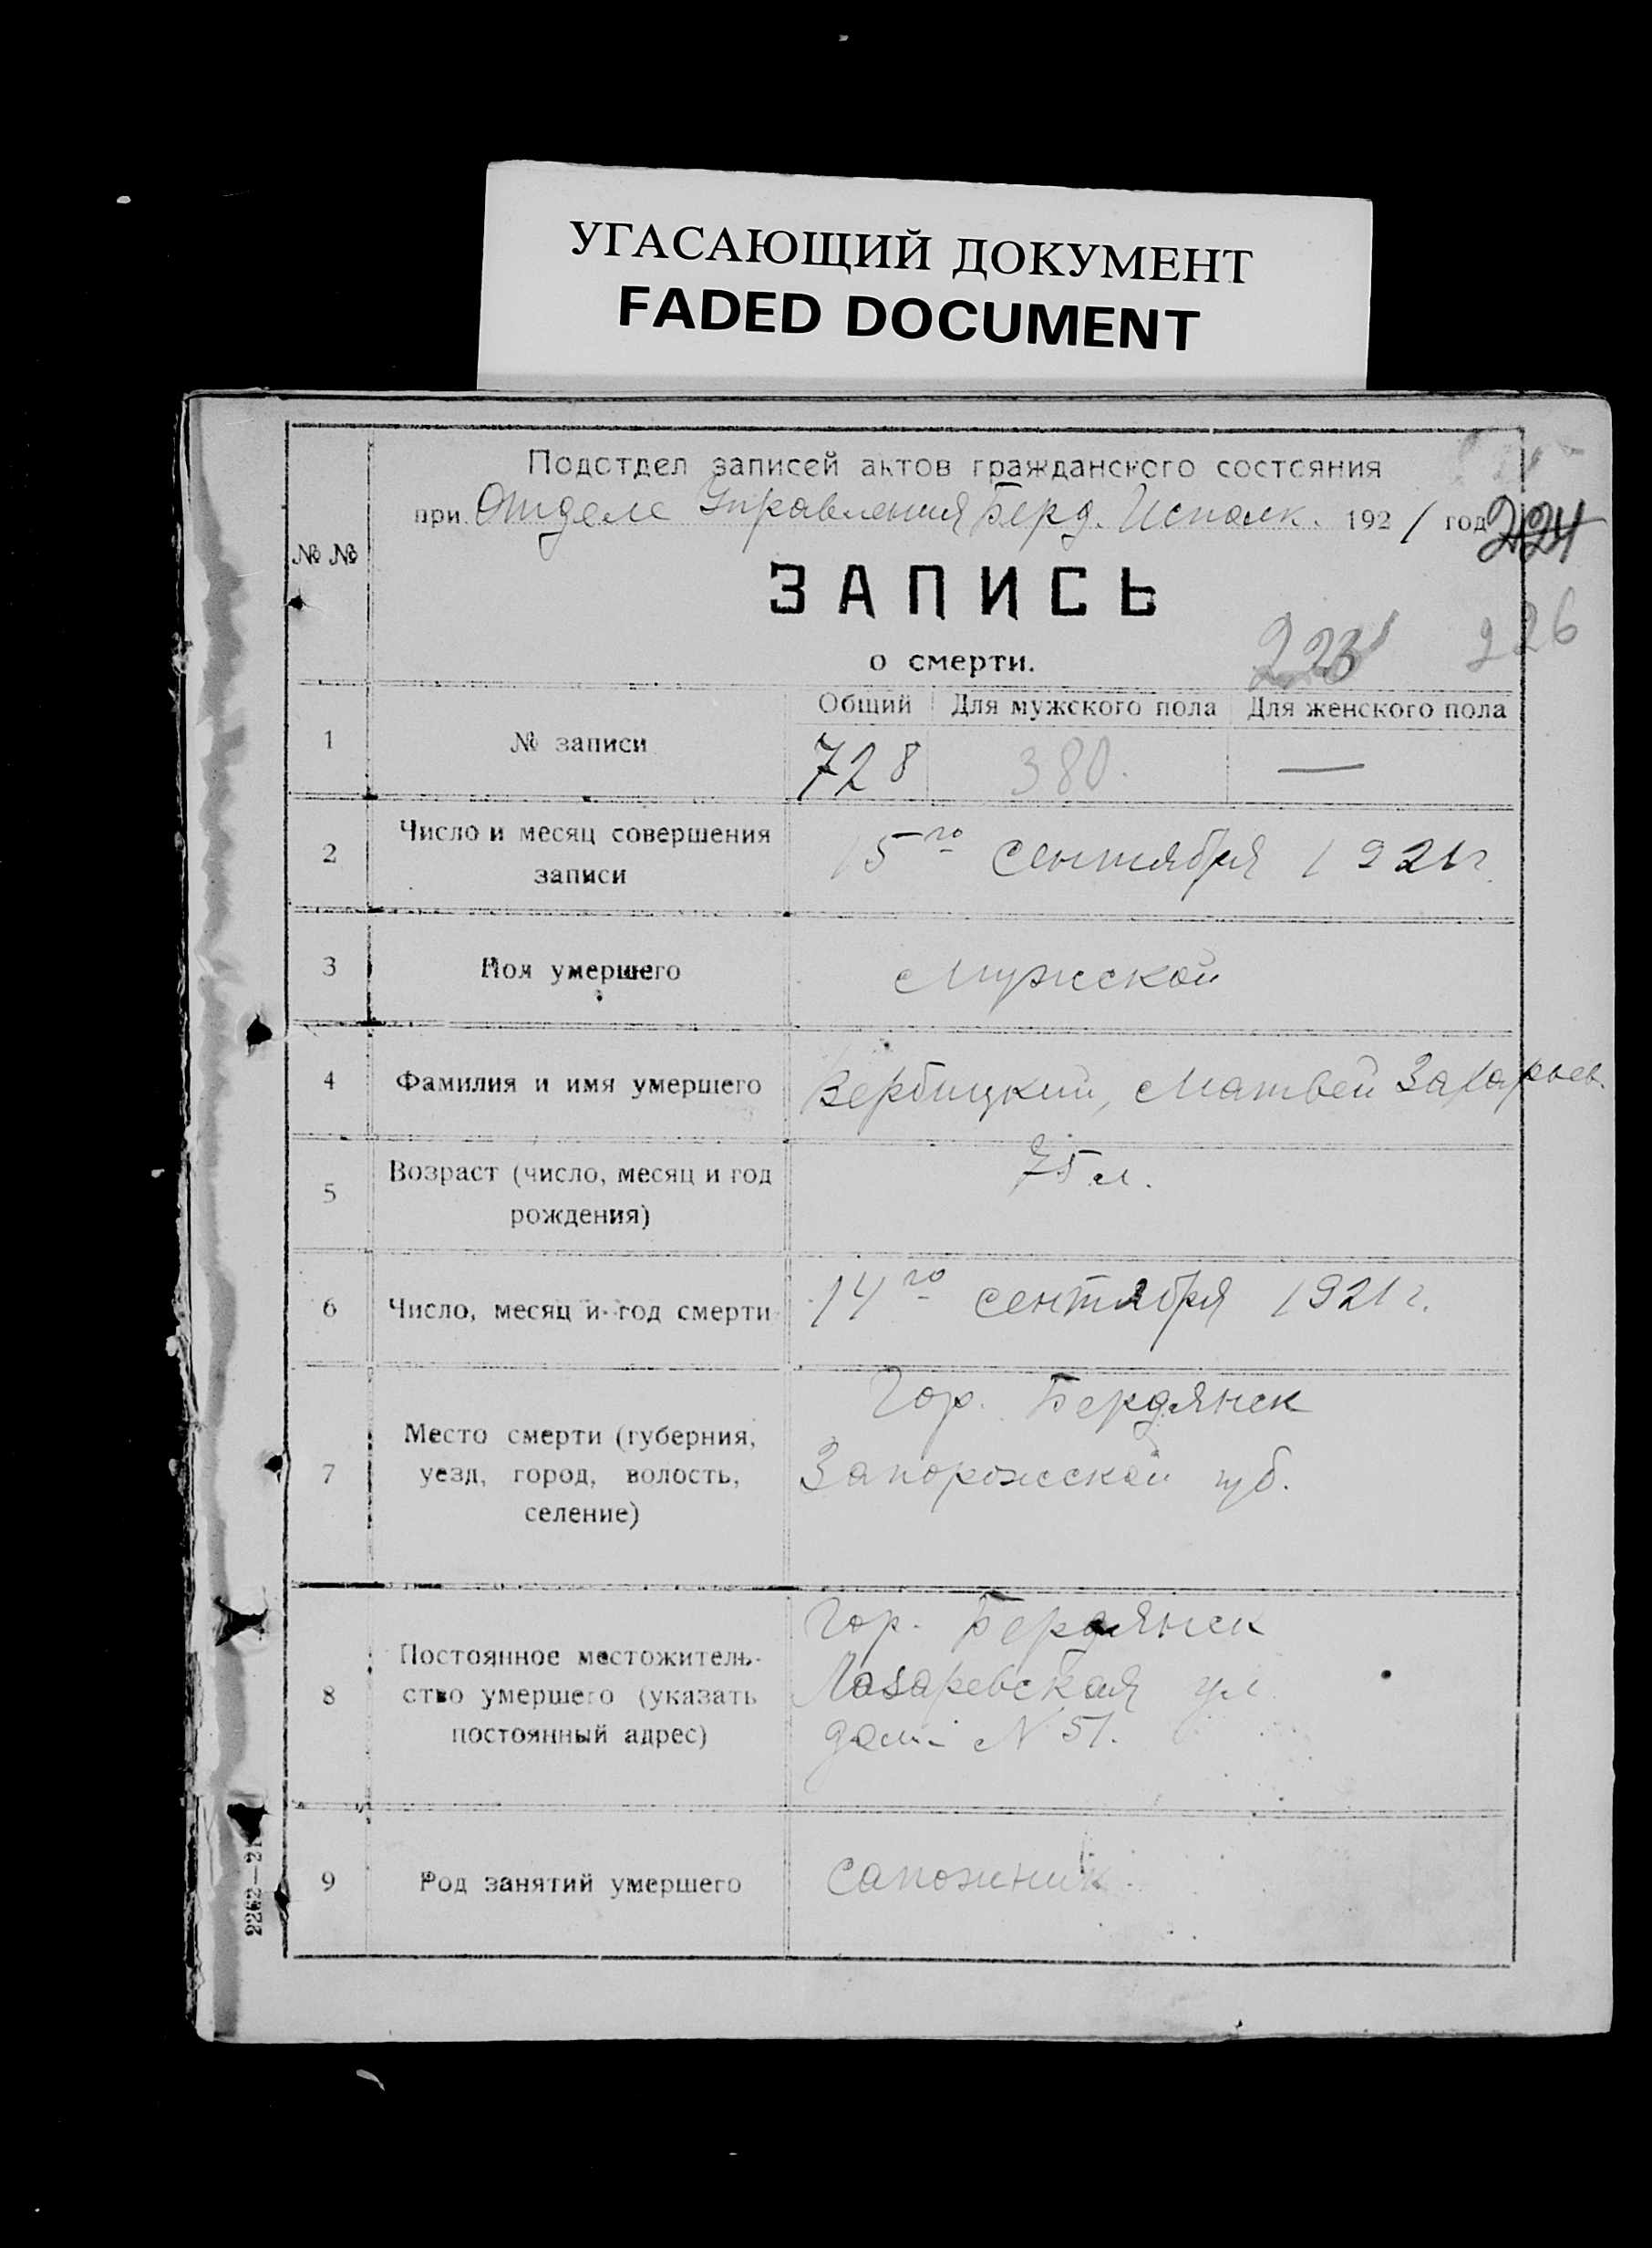 УГАСАЮЩИЙ ДОКУМЕНТ
FADED DOCUMENT
Подотдел записей актов гражданского состояния
при Отделе Управления Берд. Исполк. 1921 год
224
№ №
ЗАПИСЬ
о смерти.
223
226
Общий Для мужского пола Для женского пола
1 № записи 728 380. —
2 Число и месяц совершения
записи
15го сентября 1921г.
3 Пол умершего Мужской
4 Фамилия и имя умершего Вербицкий, Матвей Захарьев.
5 Возраст (число, месяц и год
рождения)
75 л.
6 Число, месяц и год смерти 14го сентября 1921г.
7 Место смерти (губерния,
уезд, город, волость,
селение)
Гор. Бердянск
Запорожской губ.
8 Постоянное местожитель-
ство умершего (указать
постоянный адрес)
Гор. Бердянск
Лазаревская ул
дом N 51.
9 Род занятий умершего Сапожник.
2262—21